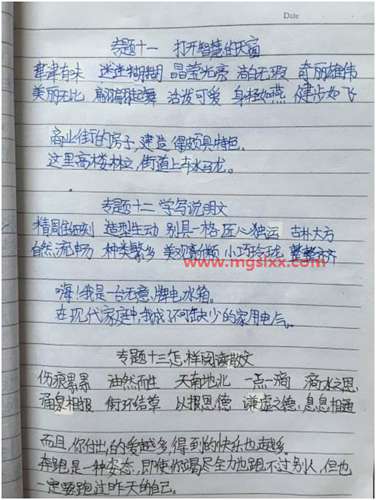 Date
专题十一 打开智慧的天窗
津津有味 迷迷糊糊 晶莹光亮 洁白无瑕 奇丽雄伟
美丽无比 翩翩起舞 活泼可爱 身轻如燕 健步如飞
商业街的房子,建造得颇具特色。
这里高楼林立,街道上车水马龙。
专题十二 学写说明文
精周细刻 造型生动 别具一格 匠心独运 古朴大方
自然流畅 种类繁多 美观新颖 小巧玲珑 整整齐齐
www.mgslxx.com
嗨!我是一台无意牌电水箱。
在现代家庭中,我成不可缺少的家用电气。
专题十三怎样阅读散文
伤痕累累 油然而生 天南地北 一点一滴 滴水之恩
涌泉相报 衔环结草 以报恩德 谦虚之德 息息相通
而且,你付出的爱越多,得到的快乐也越多。
奔跑是一种姿态,即使你竭尽全力也跑不过别人,但也
一定要跑过昨天的自己。